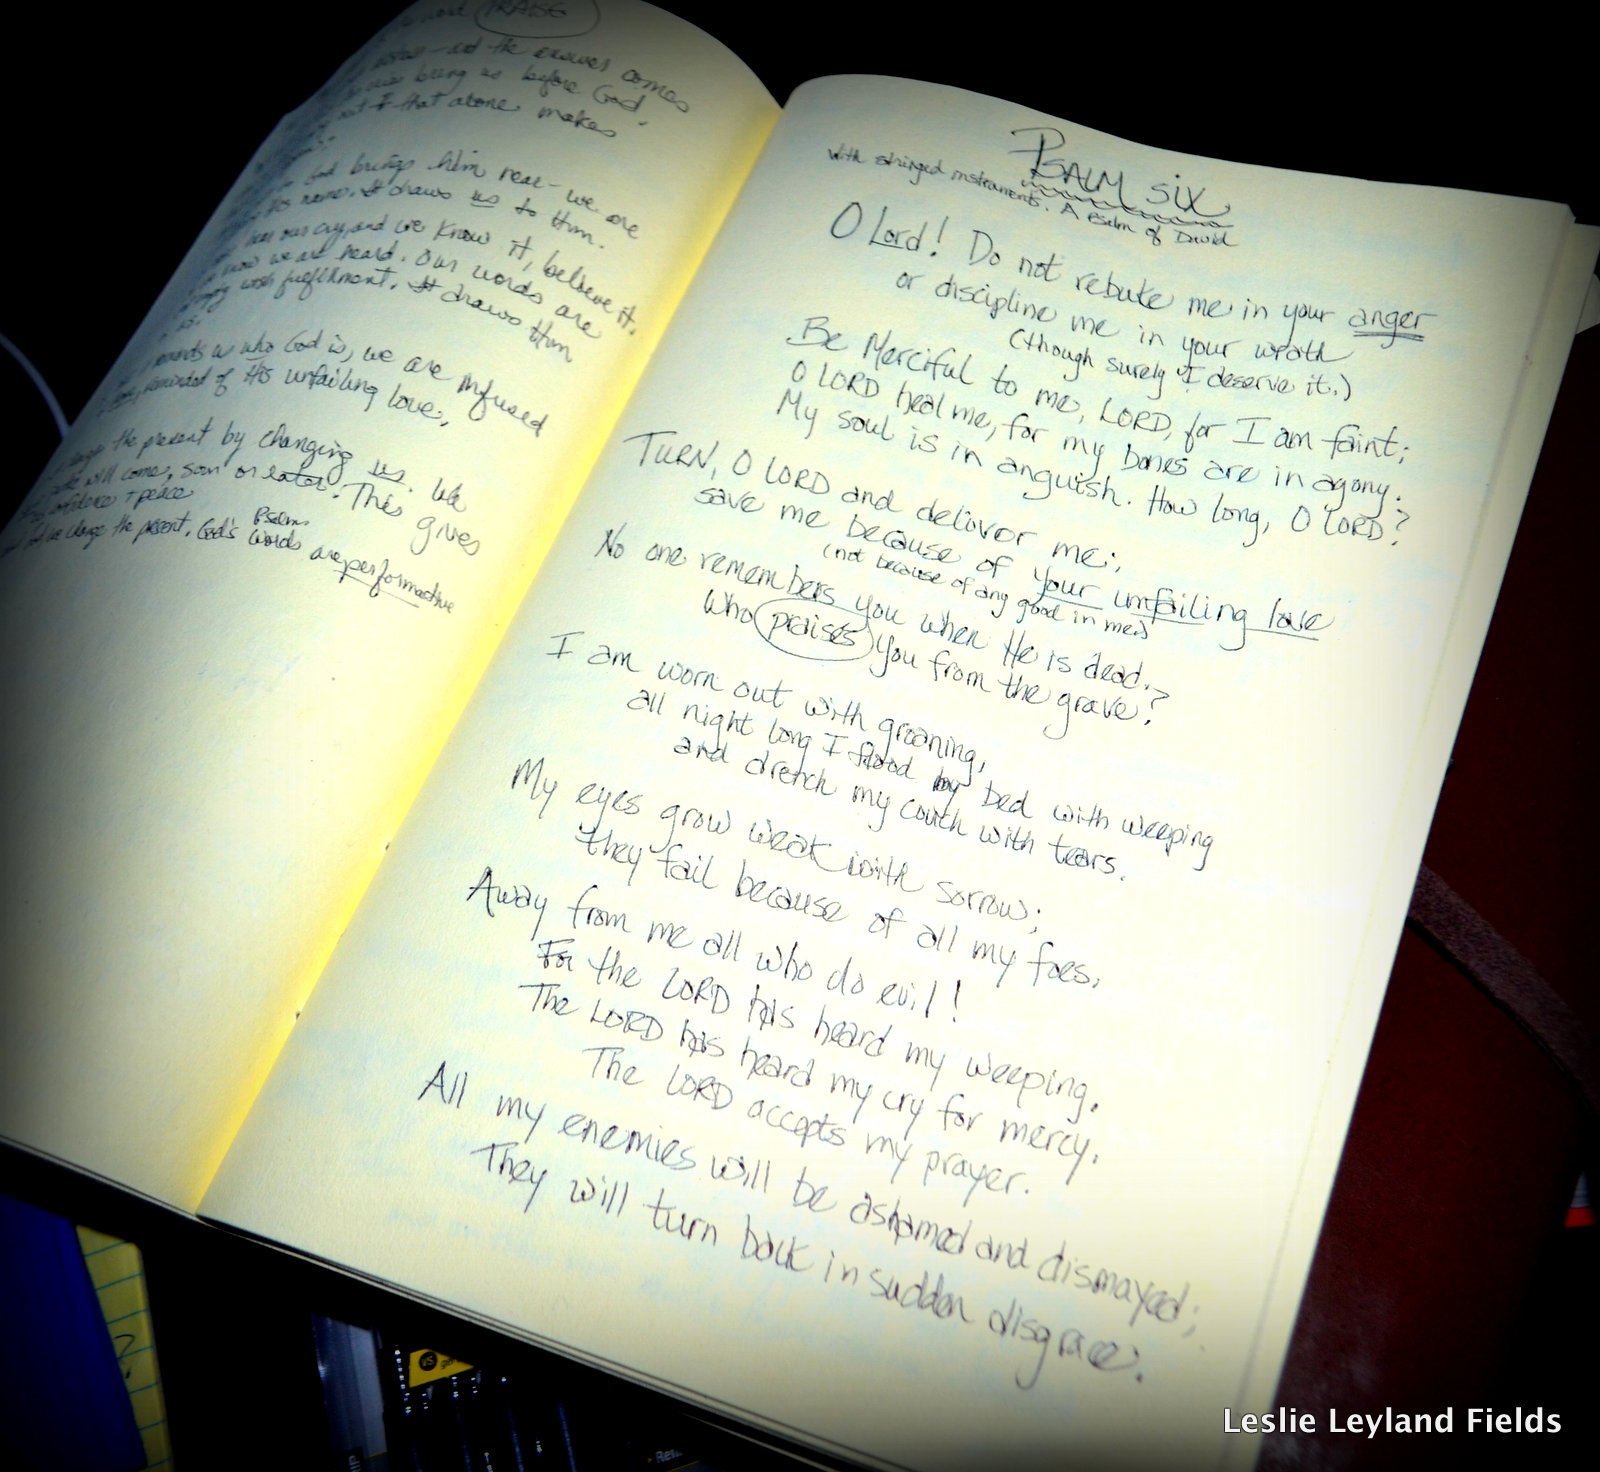 word PRAISE
and the answer comes
bring us before God,
that alone makes
God brings him near - we are
His name. It draws us to Him.
hear our cry, and we know it, believe it.
know we are heard. Our words are
wish fulfillment. It draws Him
us.
who God is, we are infused
reminded of His unfailing love,
the present by changing us. We
will come, soon or later. This gives
confidence + peace
we change the present. God's Psalms words are performative
PSALM SIX
With stringed instruments. A Psalm of David
O Lord! Do not rebuke me in your anger
or discipline me in your wrath
(though surely I deserve it.)
Be Merciful to me, LORD, for I am faint;
O LORD heal me, for my bones are in agony.
My soul is in anguish. How long, O LORD?
TURN, O LORD and deliver me;
save me because of your unfailing love
(not because of any good in me.)
No one remembers you when He is dead.
Who praises you from the grave?
I am worn out with groaning,
all night long I flood my bed with weeping
and drench my couch with tears.
My eyes grow weak with sorrow;
they fail because of all my foes.
Away from me all who do evil!
For the LORD has heard my weeping.
The LORD has heard my cry for mercy.
The LORD accepts my prayer.
All my enemies will be ashamed and dismayed;
They will turn back in sudden disgrace.
VS
Leslie Leyland Fields